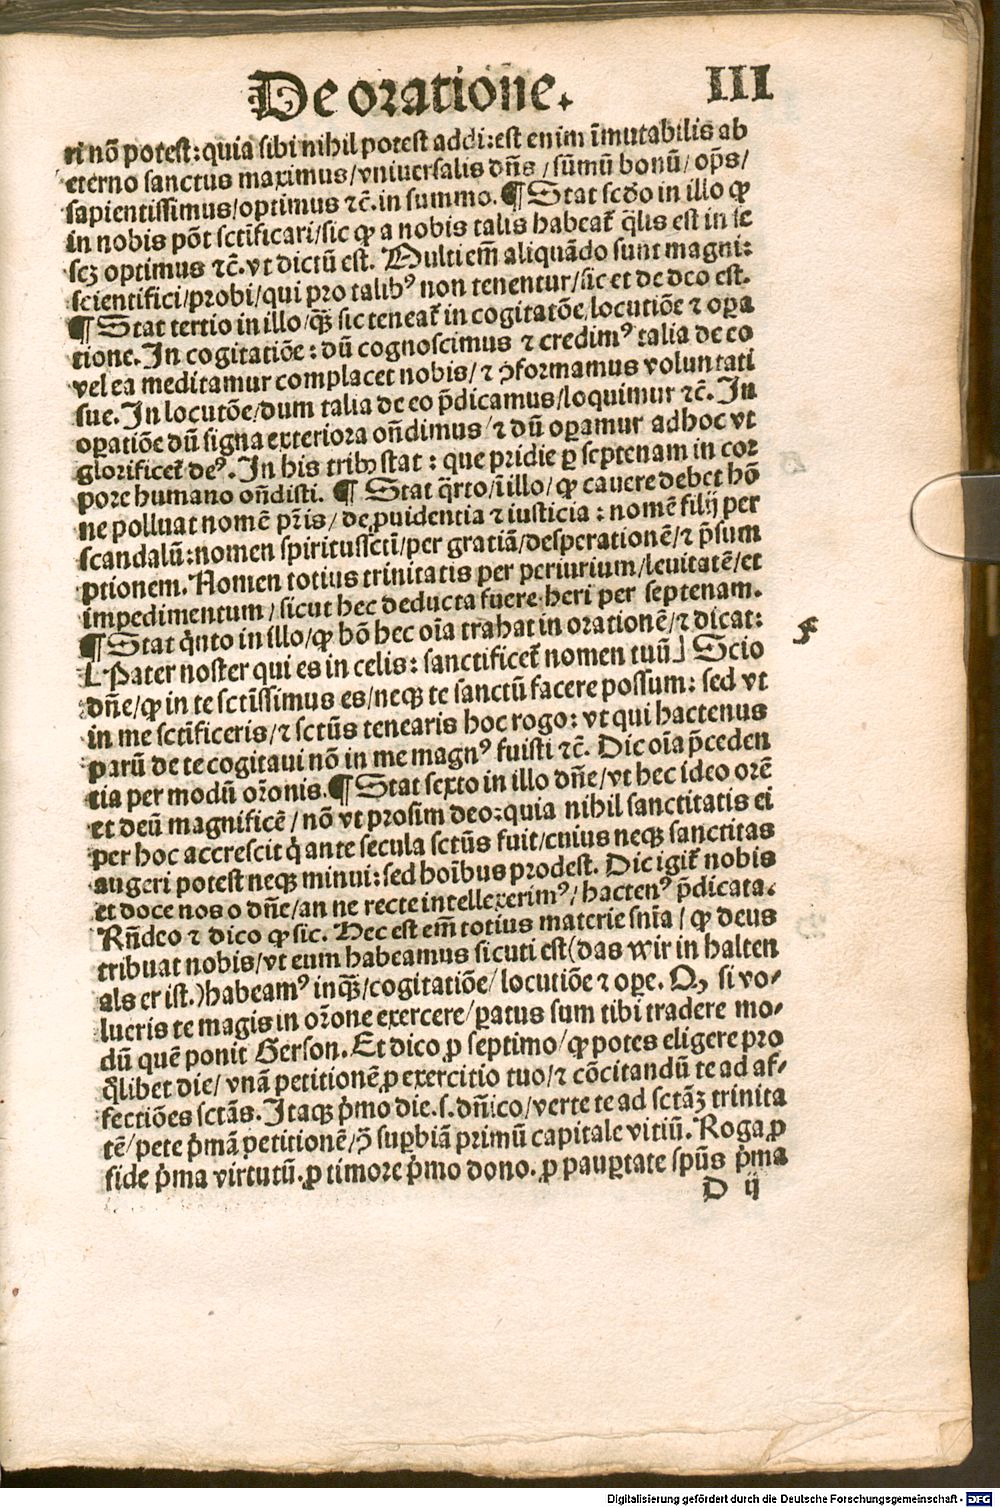 De oratione. III
ri nō potest: quia sibi nihil potest addi: est enim īmutabilis ab
eterno sanctus maximus/ vniuersalis dn̄s / sūmū bonū/ op̄s/
sapientissimus/ optimus ⁊c̄. in summo. ¶ Stat scd̄o in illo ꝙ
in nobis pōt sctificari/ sic ꝙ a nobis talis habeat᷑ q̄lis est in se
scꝫ optimus ⁊c̄. vt dictū est. Multi em̄ aliquādo sunt magni:
scientifici/ probi/ qui pro talibꝰ non tenentur/ sic et de deo est.
¶ Stat tertio in illo/ qꝫ sic teneat᷑ in cogitatōe/ locutiōe ⁊ oꝑa
tione. In cogitatiōe: dū cognoscimus ⁊ credimꝰ talia de eo
vel ea meditamur complacet nobis/ ⁊ ꝯformamus voluntati
sue. In locutōe/ dum talia de eo p̄dicamus/ loquimur ⁊c̄. In
oꝑatiōe dū signa exteriora on̄dimus/ ⁊ dū oꝑamur ad hoc vt
glorificet᷑ deꝰ. In his tribꝫ stat: que pridie ꝑ septenam in cor
pore humano on̄disti. ¶ Stat q̄rto/ ī illo/ ꝙ cauere debet hō
ne polluat nomē pr̄is/ de ꝓuidentia ⁊ iusticia: nomē filij per
scandalū: nomen spiritussctī/ per gratiā/ desperationē/ ⁊ p̄sum
ptionem. Nomen totius trinitatis per periurium/ leuitatē/ et
impedimentum/ sicut hec deducta fuere heri per septenam.
¶ Stat q̇nto in illo/ ꝙ hō hec oīa trahat in orationē/ ⁊ dicat:
⌊Pater noster qui es in celis: sanctificet᷑ nomen tuū⌋ Scio
dn̄e/ ꝙ in te sctīssimus es/ neqꝫ te sanctū facere possum: sed vt
in me sctīficeris/ ⁊ sctūs tenearis hoc rogo: vt qui hactenus
parū de te cogitaui nō in me magnꝰ fuisti ⁊c̄. Dic oīa p̄ceden
tia per modū or̄onis. ¶ Stat sexto in illo dn̄e/ vt hec ideo orē
et deū magnificē/ nō vt prosim deo: quia nihil sanctitatis ei
per hoc accrescit q̇ ante secula sctūs fuit/ cuius neqꝫ sanctitas
augeri potest neqꝫ minui: sed hoībus prodest. Dic igit᷑ nobis
et doce nos o dn̄e/ an ne recte intellexerimꝰ/ hactenꝰ p̄dicata.
Rn̄deo ⁊ dico ꝙ sic. Hec est em̄ totius materie sn̄ia/ ꝙ deus
tribuat nobis/ vt eum habeamus sicuti est (das wir in halten
als er ist.) habeamꝰ inqꝫ/ cogitatiōe/ locutiōe ⁊ oꝑe. Qꝫ si vo-
lueris te magis in or̄one exercere/ ꝑatus sum tibi tradere mo-
dū quē ponit Gerson. Et dico ꝓ septimo/ ꝙ potes eligere pro
q̄libet die/ vnā petitionē ꝓ exercitio tuo/ ⁊ cōcitandū te ad af-
fectiōes sctās. Itaqꝫ ṗmo die .s. dn̄ico/ verte te ad sctāꝫ trinita
tē/ pete ṗmā petitionē/ ꝯ̄ suꝑbiā primū capitale vitiū. Roga ꝓ
fide ṗma virtutū. ꝓ timore ṗmo dono. ꝓ pauꝑtate sp̄us ṗma
D ij
Digitalisierung gefördert durch die Deutsche Forschungsgemeinschaft - DFG